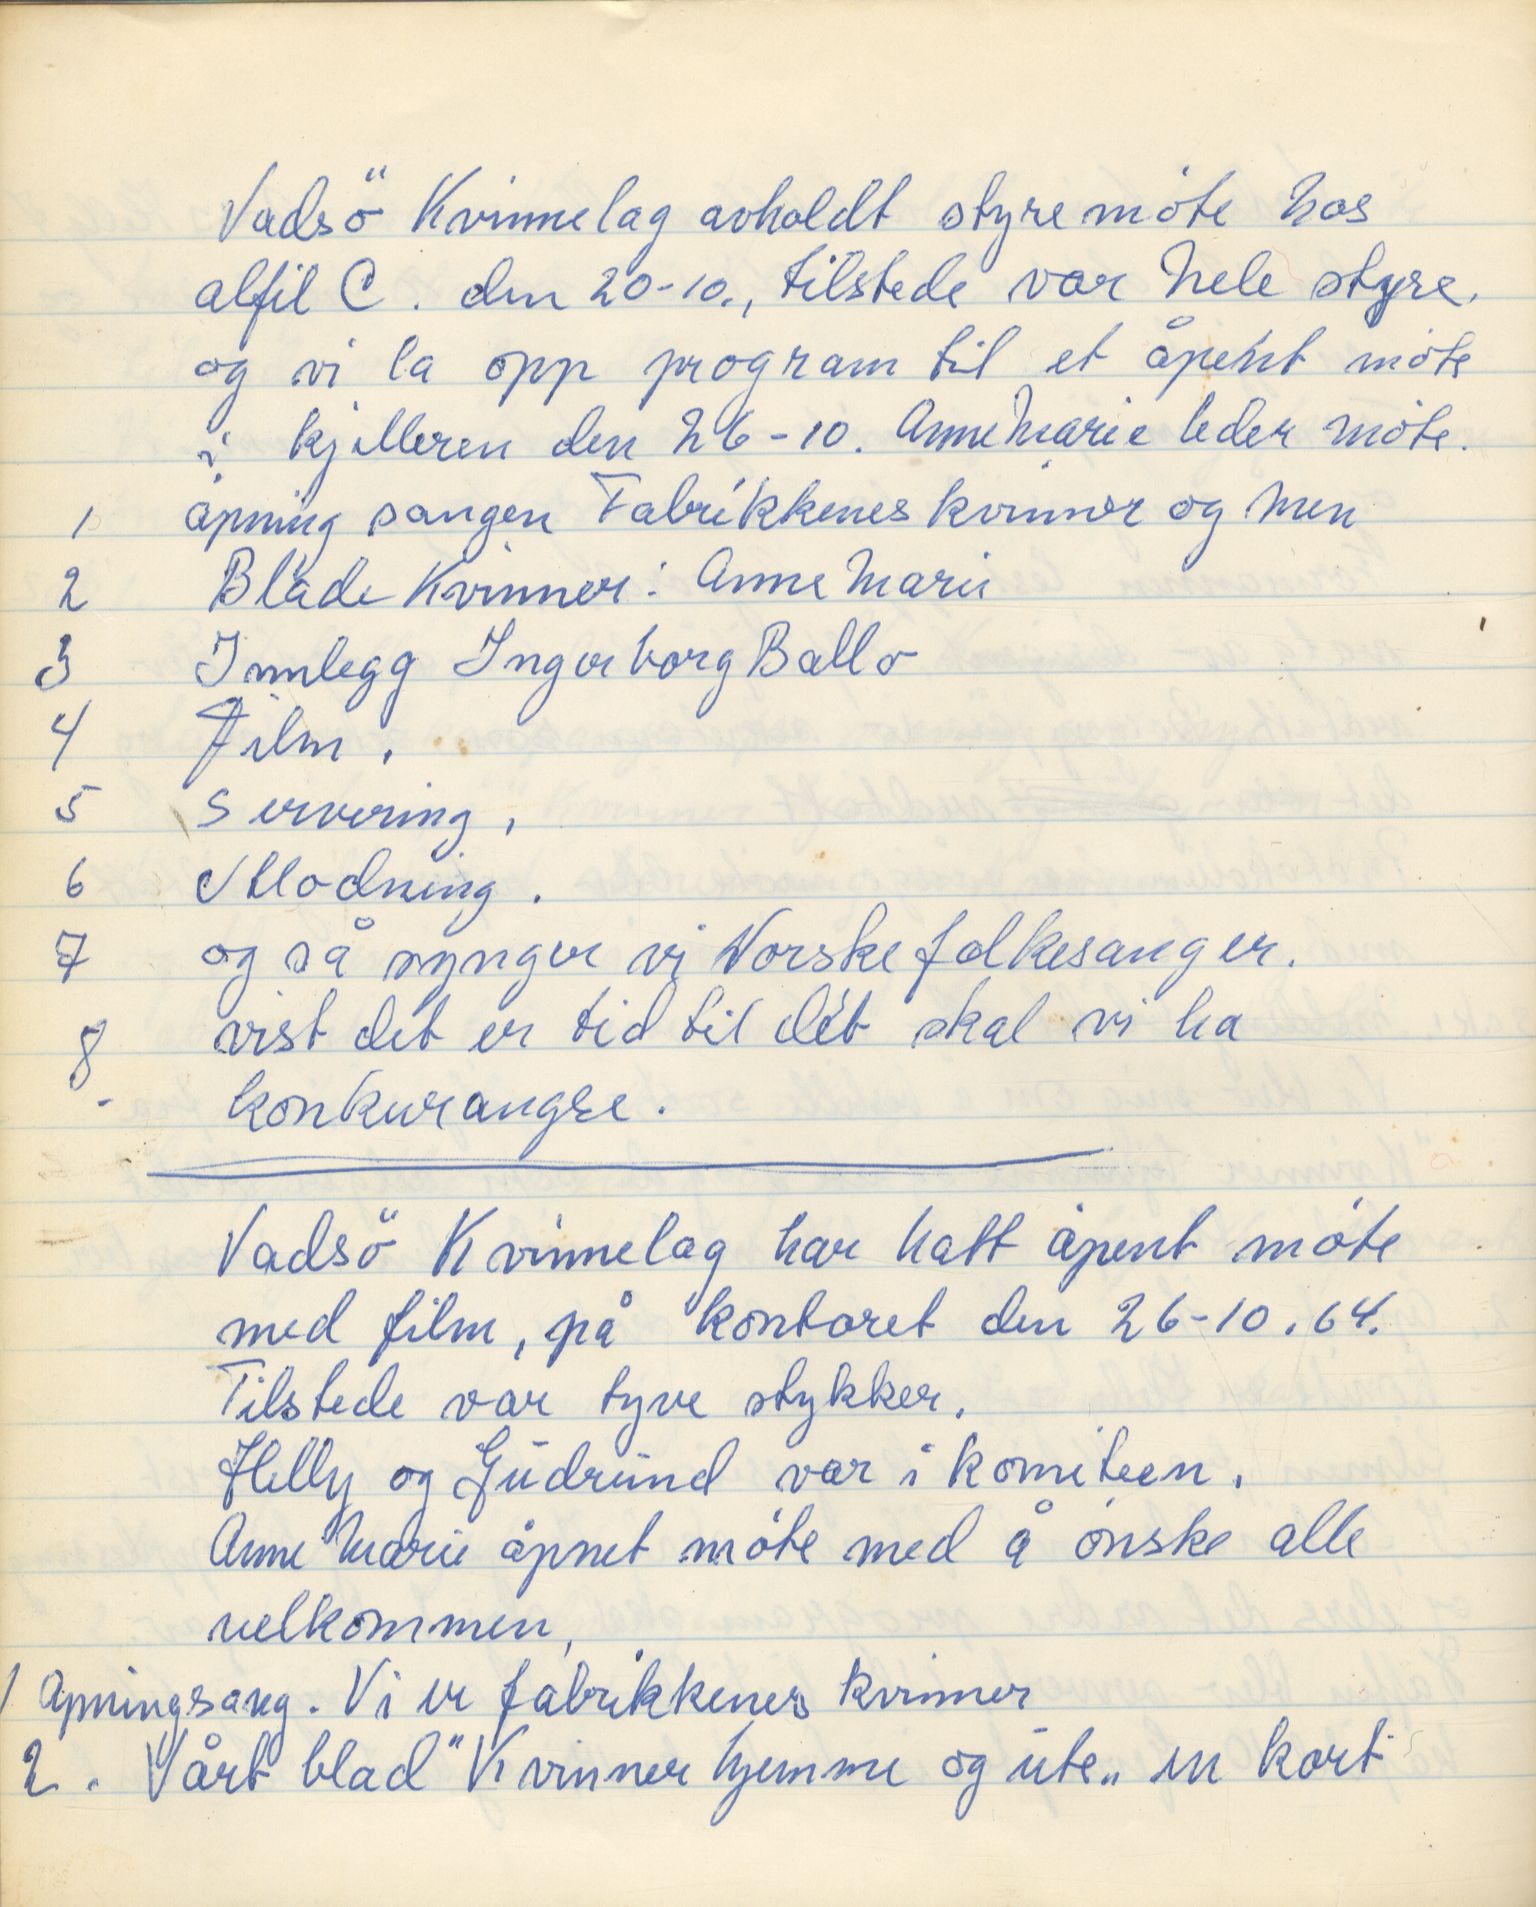 Vadsö Kvinnelag avholdt styremöte hos
alfil C. den 20-10., tilstede var hele styre.
og vi la opp program til et åpent möte
i kjelleren den 26-10. Anne Marie leder möte.
1 åpning sangen Fabrikkenes kvinner og men
2 Blade Kvinner: Anne Marie
3 Innlegg Ingerborg Ballo
4 Film.
5 Servering,
6 Utlodning.
7 og så synger vi Norske folkesanger.
8. vist det er tid til det skal vi ha
konkurangse.
Vadsö Kvinnelag har hatt åpent möte
med film, på kontoret den 26-10.64.
Tilstede var tyve stykker.
Helly og Gudrund var i komiteen.
Anne Marie åpnet möte med å önske alle
velkommen,
1 Apningsang. Vi er fabrikkenes kvinner
2. Vårt blad "Kvinner hjemme og ute„ en kort